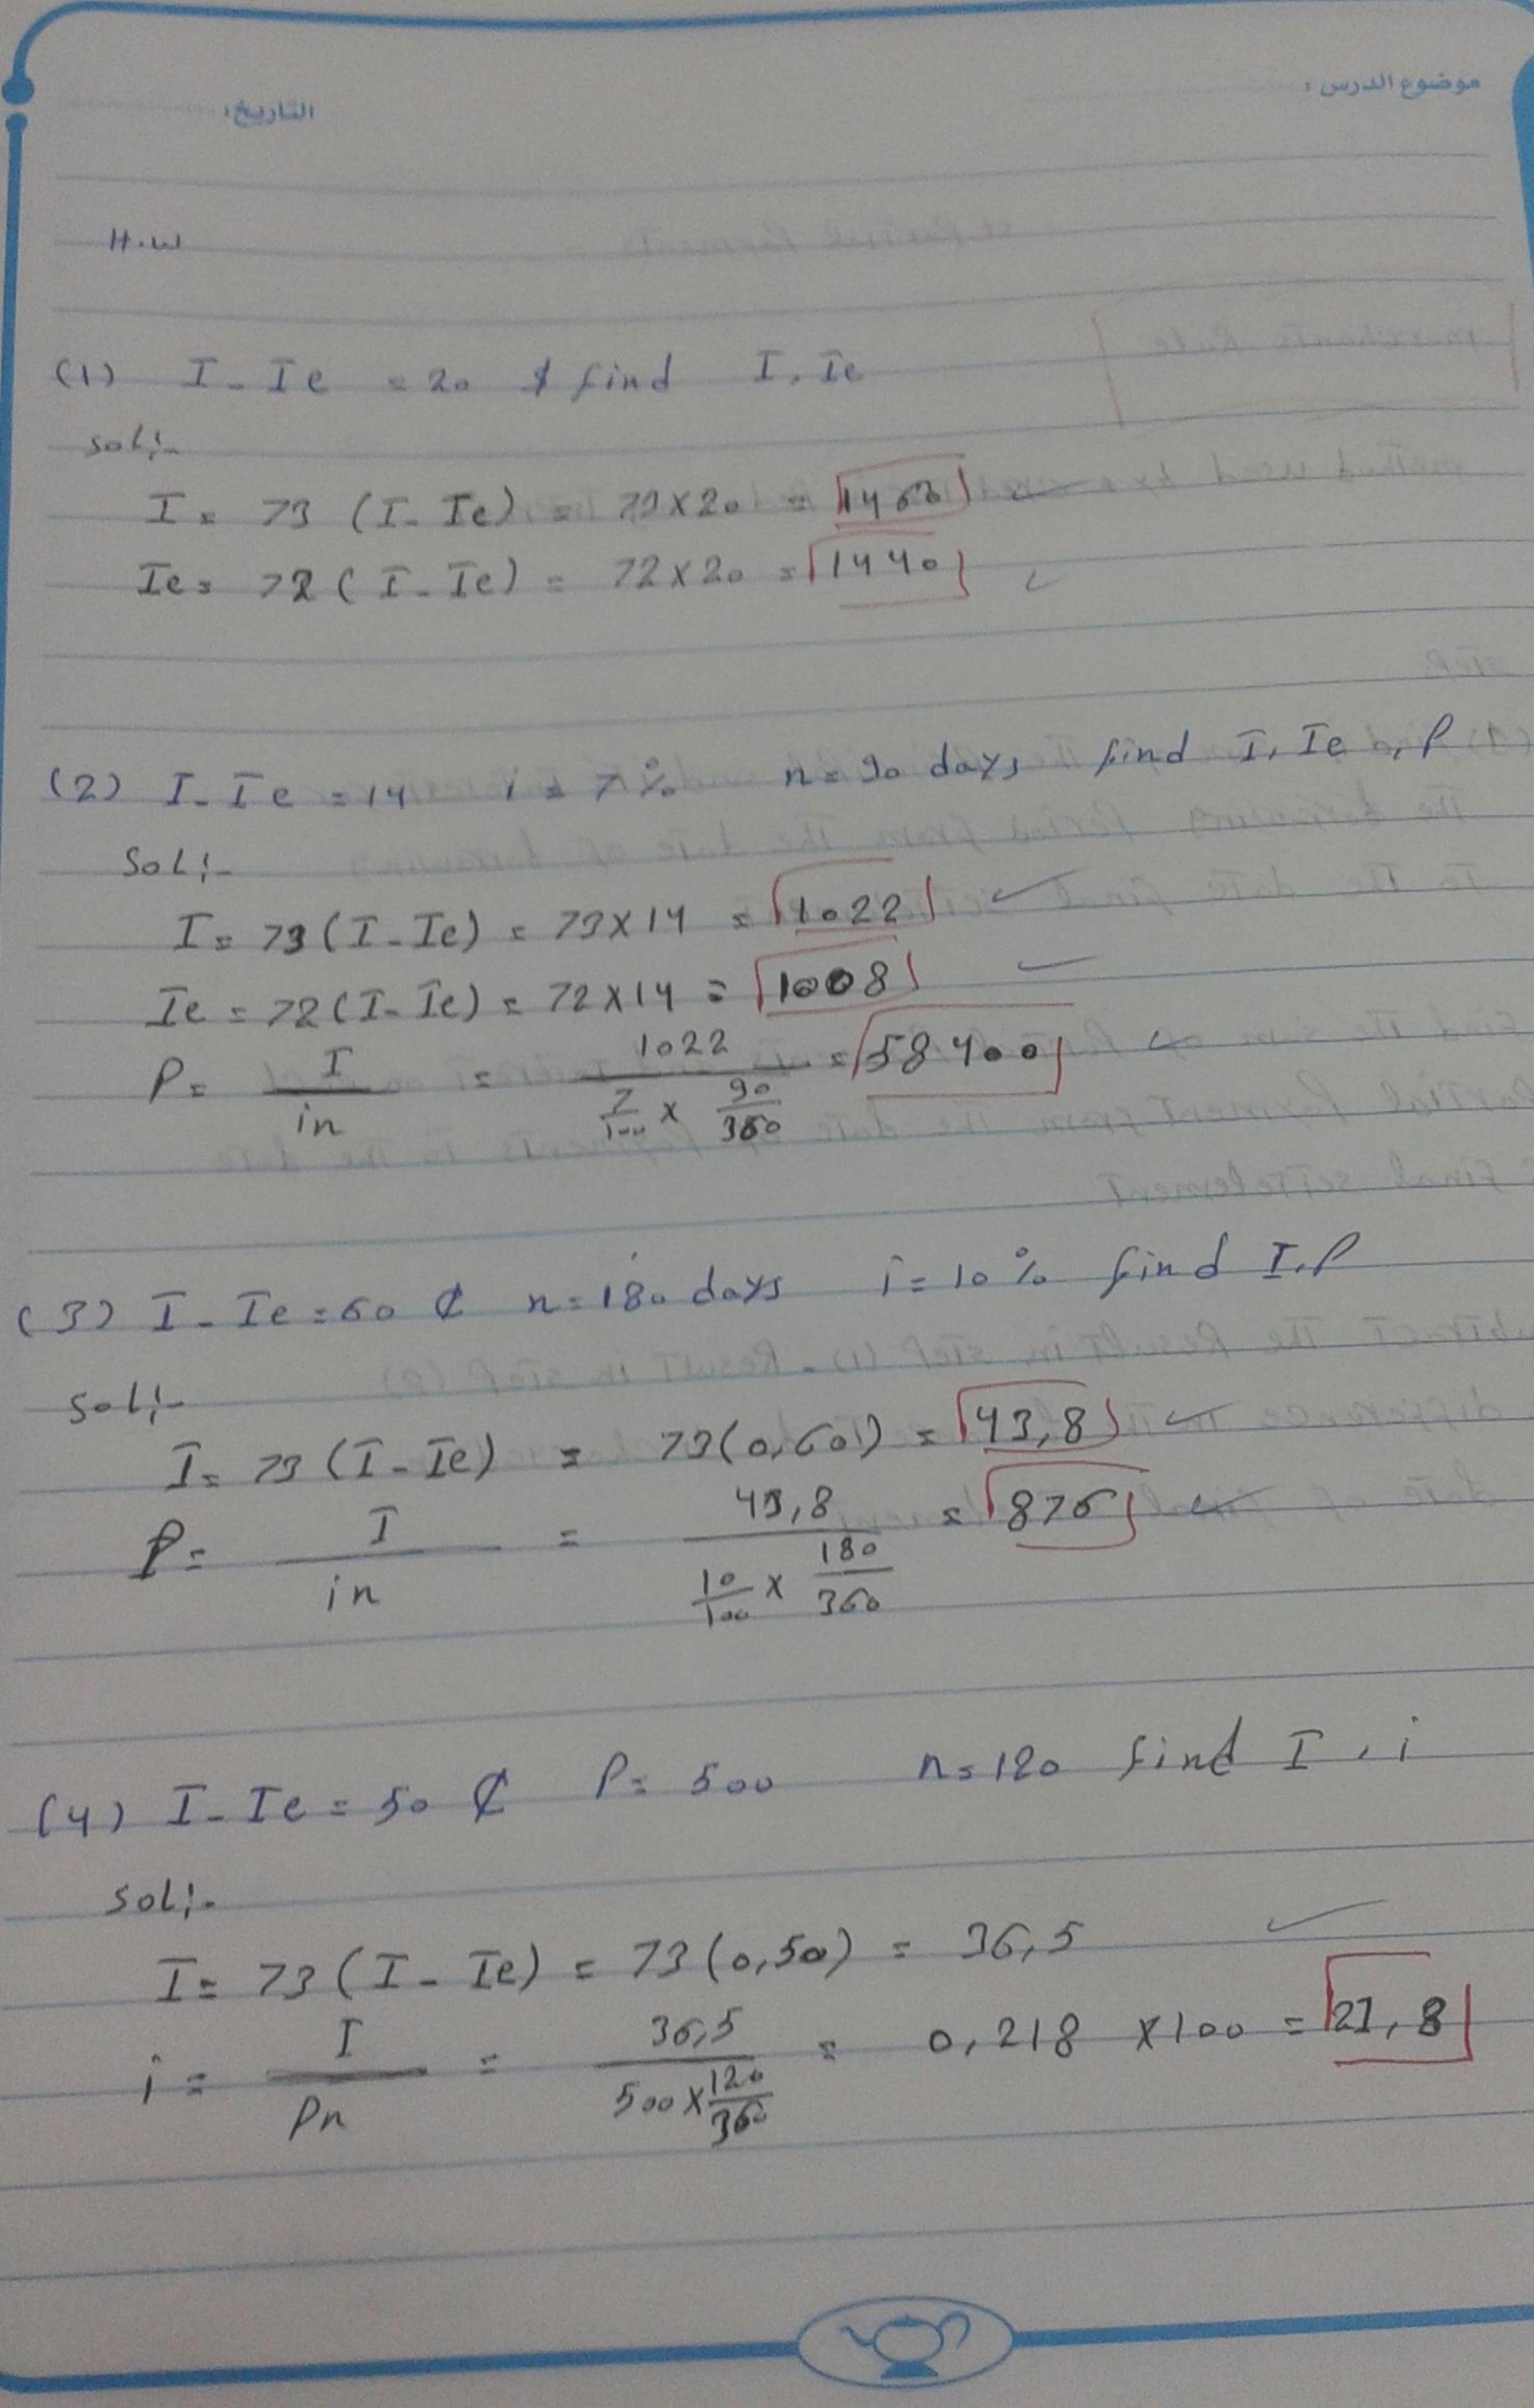 موضوع الدرس :
التاريخ:
H.W
(1) I - Ie = 20 $ find I, Ie
Sol:-
I = 73 (I - Ie) = 73 x 20 = 1460
Ie = 72 (I - Ie) = 72 x 20 = 1440
(2) I - Ie = 14 i = 7% n = 90 days find I, Ie, P
Sol:-
I = 73 (I - Ie) = 73 x 14 = 1022
Ie = 72 (I - Ie) = 72 x 14 = 1008
P = I / in = 1022 / (7/100 x 90/360) = 58400
(3) I - Ie = 60 ₵ n = 180 days i = 10% find I, P
Sol:-
I = 73 (I - Ie) = 73 (0,60) = 43,8
P = I / in = 43,8 / (10/100 x 180/360) = 876
(4) I - Ie = 50 ₵ P = 500 n = 120 find I, i
Sol:-
I = 73 (I - Ie) = 73 (0,50) = 36,5
i = I / Pn = 36,5 / (500 x 120/360) = 0,218 x 100 = 21,8